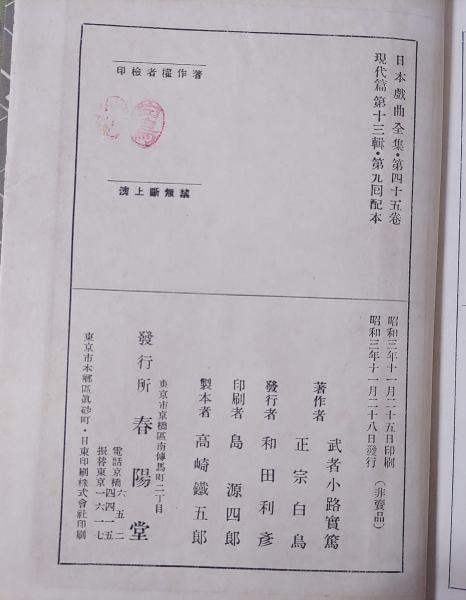 日本戲曲全集・第四十五卷
現代篇 第十三輯・第九回配本
著作權者檢印
禁無斷上演
昭和三年十一月二十五日印刷
昭和三年十一月二十八日發行
（非賣品）
著作者 武者小路實篤
正宗白鳥
發行者 和田利彥
印刷者 島源四郎
製本者 高崎鐵五郎
東京市京橋區南傳馬町二丁目
發行所 春陽堂
電話京橋
振替東京一六一七
東京市本鄕區眞砂町・日東印刷株式會社印刷